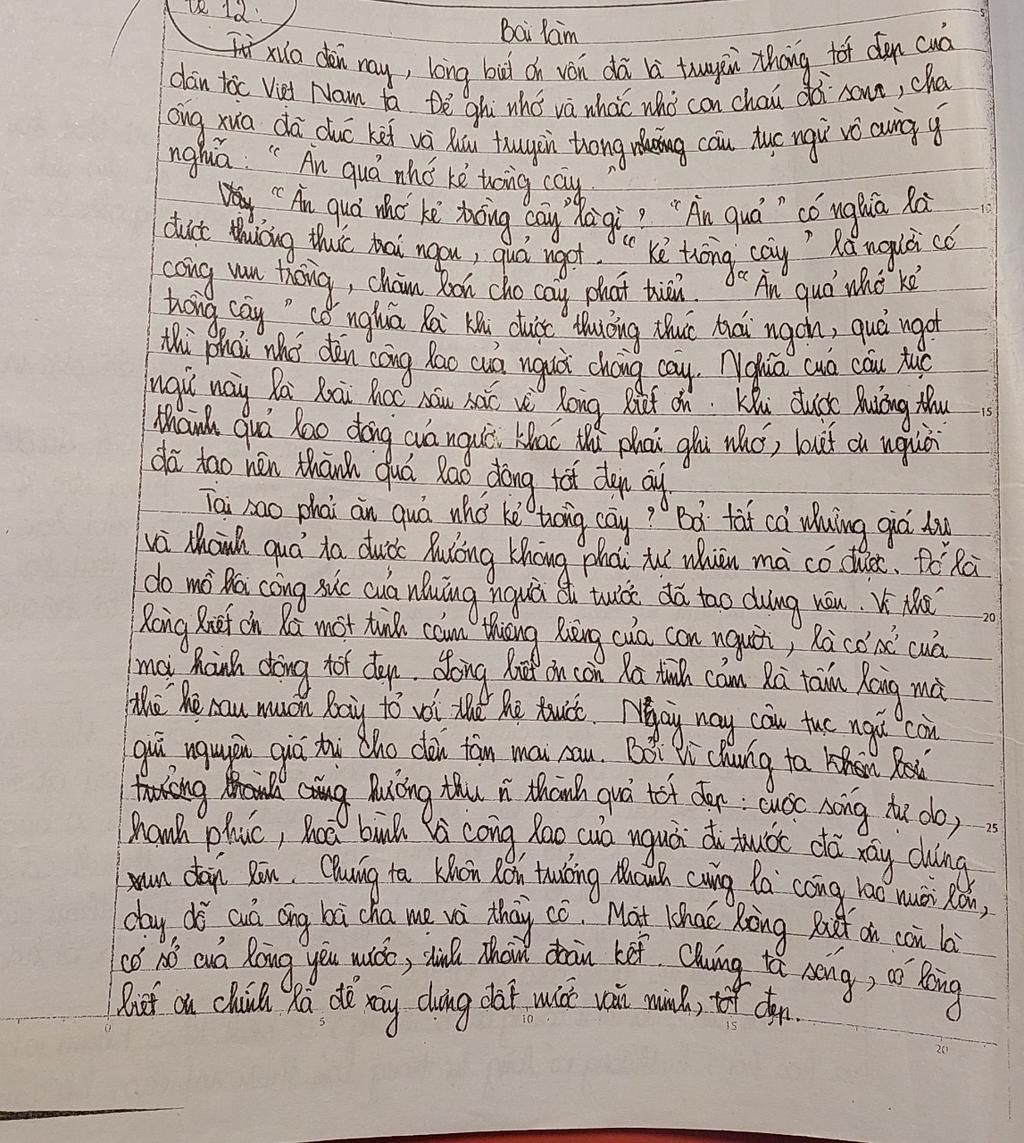 Đề 12:
Bài làm
Từ xưa đến nay, lòng biết ơn vốn đã là truyền thống tốt đẹp của
dân tộc Việt Nam ta. Để ghi nhớ và nhắc nhở con cháu đời sau, cha
ông xưa đã đúc kết và lưu truyền trong những câu tục ngữ vô cùng ý
nghĩa: "Ăn quả nhớ kẻ trồng cây."
Vậy "Ăn quả nhớ kẻ trồng cây" là gì? "Ăn quả" có nghĩa là
được thưởng thức trái ngon, quả ngọt. "Kẻ trồng cây" là người có
công vun trồng, chăm bón cho cây phát triển. "Ăn quả nhớ kẻ
trồng cây" có nghĩa là khi được thưởng thức trái ngon, quả ngọt
thì phải nhớ đến công lao của người chồng cây. Nghĩa của câu tục
ngữ này là bài học sâu sắc về lòng biết ơn. Khi được hưởng thụ
thành quả lao động của người khác thì phải ghi nhớ, biết ơn người
đã tạo nên thành quả lao động tốt đẹp ấy.
Tại sao phải ăn quả nhớ kẻ trồng cây? Bởi tất cả những giá trị
và thành quả ta được hưởng không phải tự nhiên mà có được. Đó là
do mồ hôi công sức của những người đi trước đã tạo dựng nên. Vì thế
lòng biết ơn là một tình cảm thiêng liêng của con người, là cơ sở của
mọi hành động tốt đẹp. Lòng biết ơn còn là tình cảm là tấm lòng mà
thế hệ sau muốn bày tỏ với thế hệ trước. Ngày nay câu tục ngữ còn
giữ nguyên giá trị cho đến tận mai sau. Bởi vì chúng ta khôn lớn
trưởng thành cũng hưởng thụ thành quả tốt đẹp: cuộc sống tự do,
hạnh phúc, hoà bình là công lao của người đi trước đã xây dựng
vun đắp lên. Chúng ta khôn lớn trưởng thành cũng là công lao nuôi lớn,
dạy dỗ của ông bà cha mẹ và thầy cô. Mặt khác lòng biết ơn còn là
cơ sở của lòng yêu nước, tinh thần đoàn kết. Chúng ta sống, có lòng
biết ơn chính là để xây dựng đất nước văn minh, tốt đẹp.